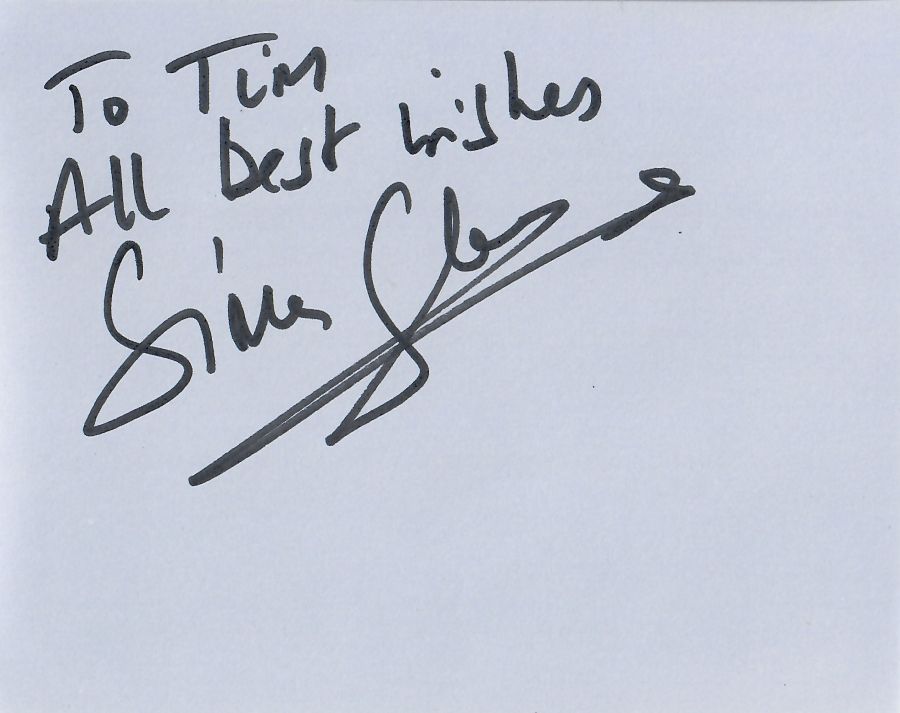 To Tim
All best wishes
Simon